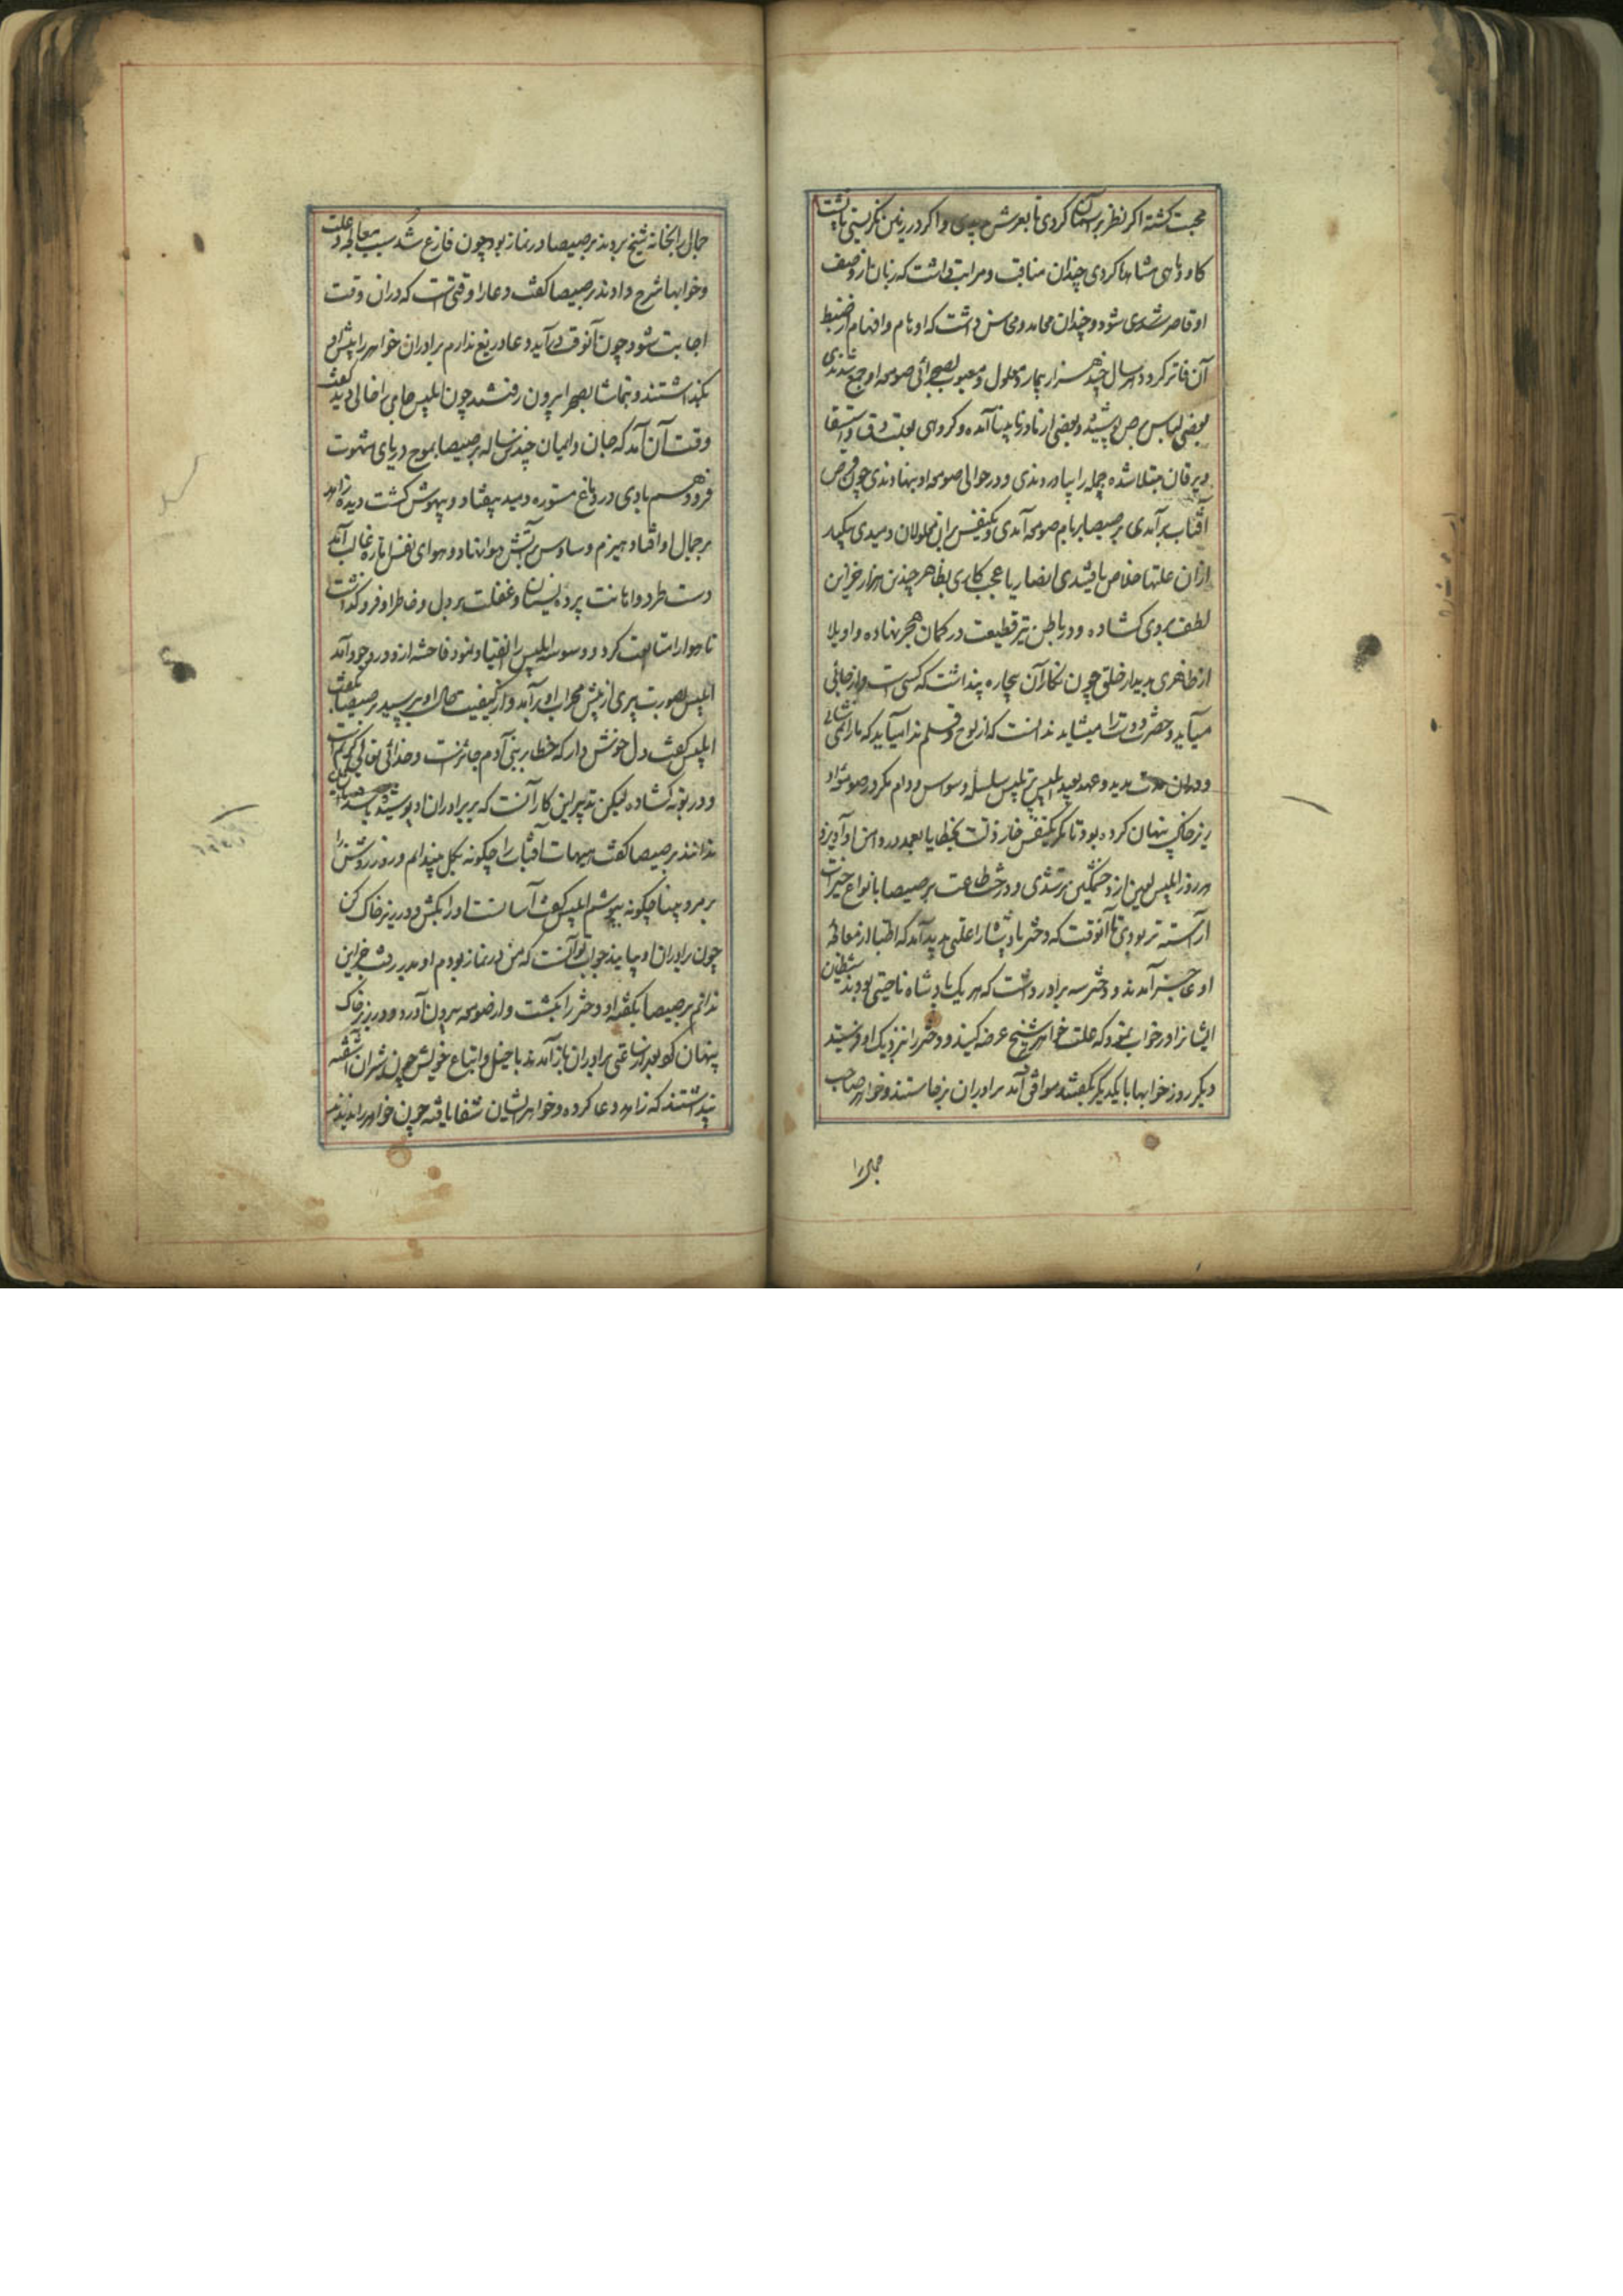 محبت کشته اکر نظر بر آسمان کردی تا بعرش بدیدی و اکر در زمین نکریستی تا پشت
کاو و ماهی مشاهدا کردی چندان مناقب و مراتب داشت که زبان از وصف
او قاصر شدی شود و چندان محامد و محاسن داشت که اوهام و افهام از ضبط
آن فاتر کردد هر سال چند هزار بیمار و معلول و معیوب بصحرائی صومعه او جمع شدندی
بعضی لباس برص پوشیده و بعضی از مادر نابینا آمده و کروهی بعلت دق و استسقا
و یرقان مبتلا شده جمله را بیاوردندی و در حوالی صومعه او بنهادندی چون قرص
آفتاب برآمدی برصیصا بر بام صومعه آمدی و یکنفس بران معلولان دمیدی بیکبار
ازان علتها خلاص یافتندی انصار یا عجب کاری بظاهر چندین هزار خزاین
لطف بروی کشاده و در باطن تیر قطیعت در کمان هجر نهاده واویلا
از ظاهری بدیدار خلق چون نکار آن بیچاره پنداشت که کسی است و از جائی
میآید و حضرت دوست را میشاید ندانست که از لوح و قلم ندا میآید که ما را نمی شائی
و دران مدت مدید و عهد بعید ابلیس پر تلبیس سلسله وسوس و دام مکر در صومعه او
زیر خاک پنهان کرده بود تا مکر یکنفس خار ذلت بخطا یا بعمد در دامن او آویزد
هر روز ابلیس لعین ازو خشمکین تر شدی و درخت طاعت برصیصا بانواع خیرات
آراسته تر بودی تا آنوقت که دختر پادشاه را علتی پدید آمد که اطبا از معالجه
او عاجز آمدند و دختر سه برادر داشت که هر یک پادشاه ناحیتی بودند شیطان
ایشانرا در خواب بنمود که علت خواهر بر شیخ عرضه کنید و دختر را نزدیک او فرستید
دیکر روز خوابها با یکدیکر بکفتند موافق آمد برادران برخاستند و خواهر صاحب
جمال را
جمال را بخانه شیخ بردند برصیصا در نماز بود چون فارغ شد سبب معالجه و علت
و خوابها شرح دادند برصیصا کفت دعا را وقتی است که دران وقت
اجابت شود چون آنوقت درآید دعا دریغ ندارم برادران خواهر را پیش او
بکذاشتند و بتماشا بصحرا بیرون رفتند چون ابلیس جای را خالی دید کفت
وقت آن آمد که جان و ایمان چندین ساله برصیصا بموج دریای شهوت
فرو دهم بادی در دماغ مستوره دمید بیفتاد و بیهوش کشت دیده زاهد
بر جمال او افتاد هیزم وساوس بر آتش هوا نهاد و هوای نفس اماره غالب آمد
دست طرد و اهانت پرده نسیان و غفلت بر دل و خاطر او فرو کذاشت
تا هوا را متابعت کرد و وسوسه ابلیس را انقیاد نمود فاحشه ازو در وجود آمد
ابلیس بصورت پیری از پیش محراب او برآمد و از کیفیت حال او بپرسید برصیصا بکفت
ابلیس کفت دل خوش دار که خطا بر بنی آدم جائزست و خدائی تعالی کریم است
و در توبه کشاده لیکن تدبیر این کار آنست که بر برادران او پوشیده باشد
ندانند برصیصا کفت هیهات آفتاب را چکونه بکل بپندایم و روز روشن را
بر مرد بینا چکونه بپوشم ابلیس کفت آسانست او را بکش و در زیر خاک کن
چون برادران او بیایند جواب تو آنست که من در نماز بودم او بدر رفت جز این
ندانم برصیصا بکفته او دختر را بکشت و از صومعه بیرون آورد و در زیر خاک
پنهان کرد بعد از ساعتی برادران باز آمدند با خیل و اتباع خویش چون شیران آشفته
پنداشتند که زاهد دعا کرده و خواهر ایشان شفا یافته چون خواهر را ندیدند